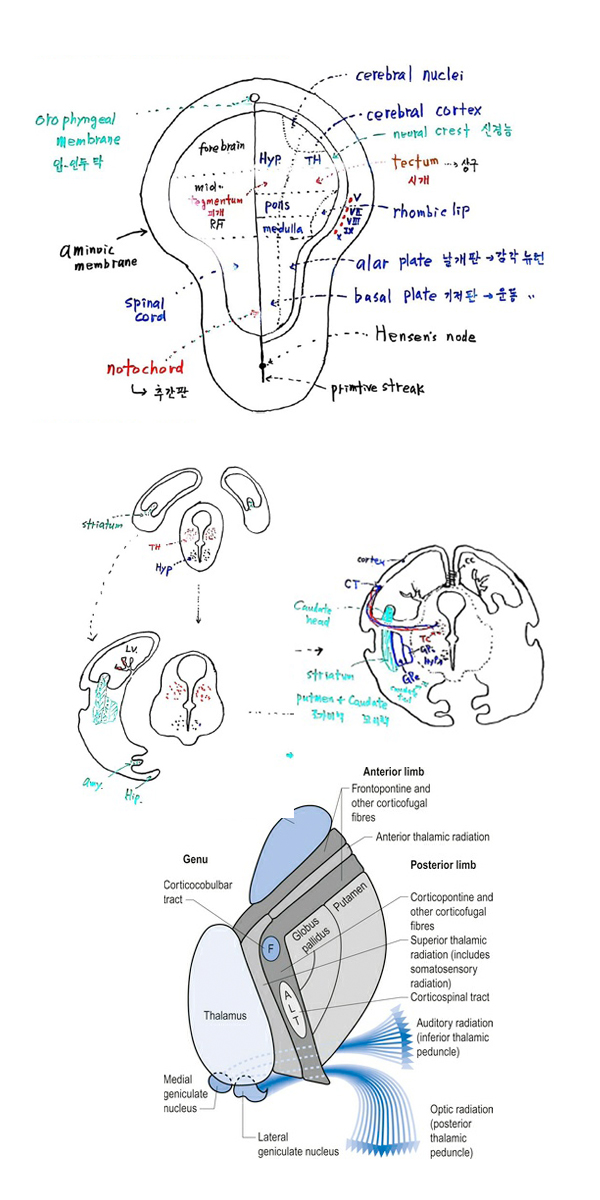 cerebral nuclei
cerebral cortex
neural crest 신경능
Orophyngeal
membrane
입-인두 막
forebrain
Hyp
TH
tectum → 상구
시개
mid-
tegmentum
피개
RF
pons
medulla
V
VII
VIII
IX
X
rhombic lip
aminoic
membrane
alar plate 날개판 → 감각 뉴런
basal plate 기저판 → 운동 "
spinal
cord
notochord
↳ 추간판
Hensen's node
primtive streak
striatum
TH
Hyp
cortex
CC
CT
Caudate
head
TC
GPi
Hyp
GPe
caudate
tail
striatum
putmen + Caudate
L.V.
amy.
Hip.
Anterior limb
Frontopontine and
other corticofugal
fibres
Anterior thalamic radiation
Genu
Posterior limb
Corticocobulbar
tract
Corticopontine and
other corticofugal
fibres
Putamen
Globus
pallidus
F
Superior thalamic
radiation (includes
somatosensory
radiation)
A
L
T
Corticospinal tract
Thalamus
Auditory radiation
(inferior thalamic
peduncle)
Medial
geniculate
nucleus
Lateral
geniculate nucleus
Optic radiation
(posterior
thalamic
peduncle)